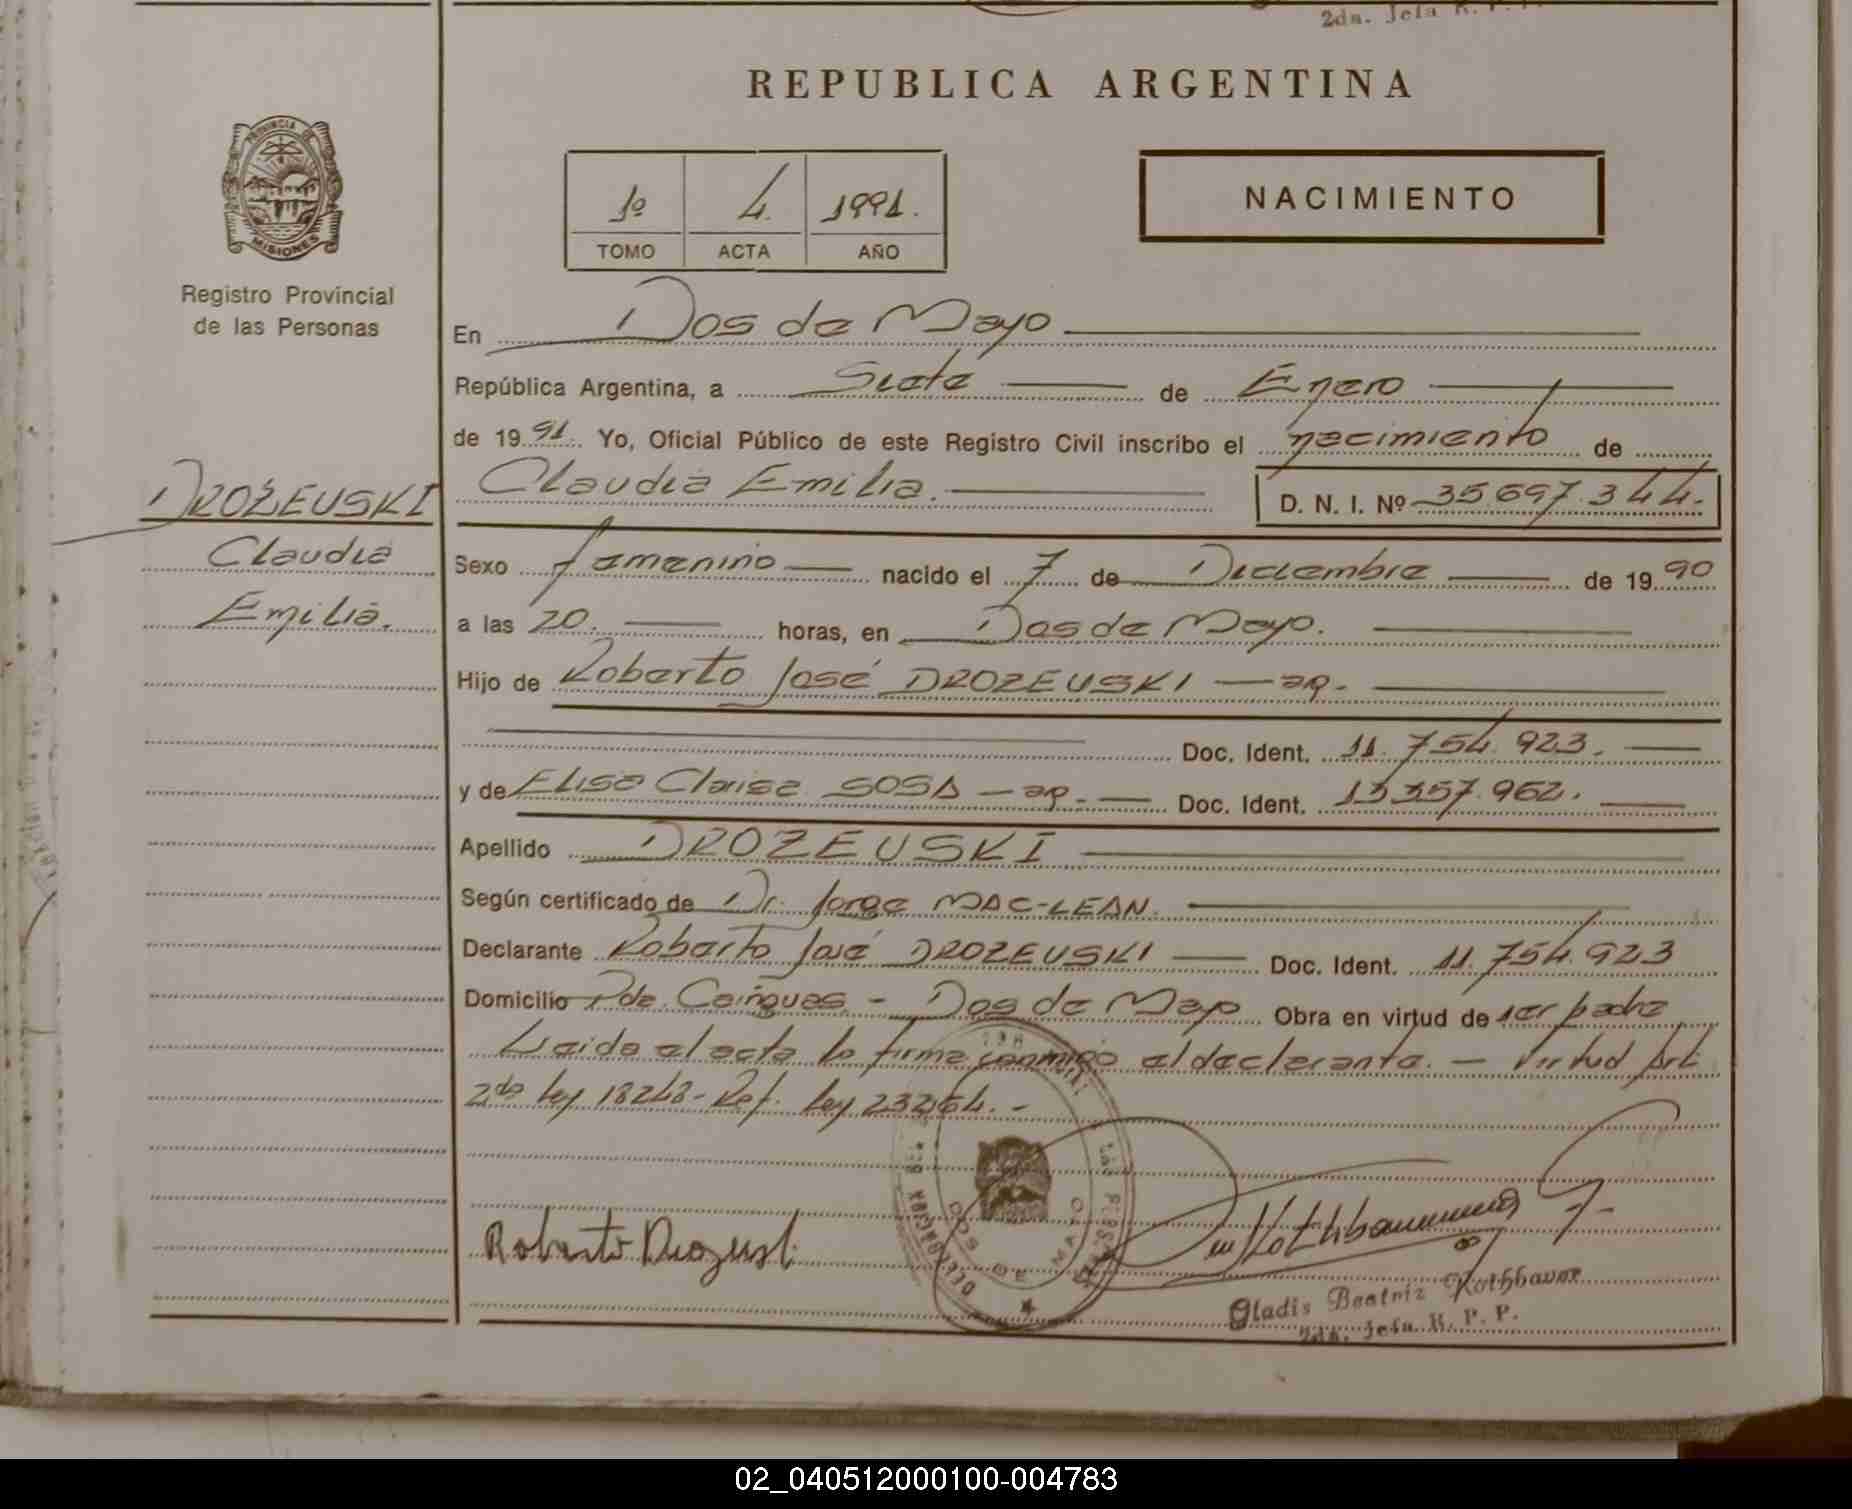 2da. Jefa R. P. P.
REPUBLICA ARGENTINA
PROVINCIA DE
MISIONES
Registro Provincial
de las Personas
1º 4. 1991.
TOMO ACTA AÑO
NACIMIENTO
En Dos de Mayo
República Argentina, a Siete de Enero
de 1991. Yo, Oficial Público de este Registro Civil inscribo el nacimiento de
DROZEUSKI
Claudia
Emilia.
Claudia Emilia. D. N. I. Nº 35.697.344.
Sexo femenino nacido el 7 de Diciembre de 1990
a las 20. horas, en Dos de Mayo.
Hijo de Roberto José DROZEUSKI — ar.
Doc. Ident. 11.754.923.
y de Elisa Clarisa SOSA — ar. Doc. Ident. 13.357.962.
Apellido DROZEUSKI
Según certificado de Dr. Jorge MAC-LEAN.
Declarante Roberto José DROZEUSKI Doc. Ident. 11.754.923
Domicilio Pde. Cainguas - Dos de Mayo Obra en virtud de ser padre
Leida el acta la firma conmigo el declarante. — Virtud Art.
2do ley 18248 - Ref. ley 23264. -
DOS DE MAYO
Gladis Beatriz Rothbauer
2da. Jefa R. P. P.
02_040512000100-004783